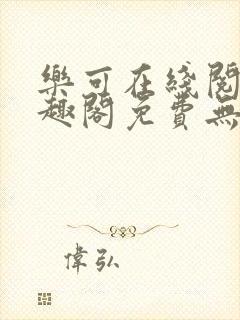 樂可在綫閱
趣閣免費無
偉弘